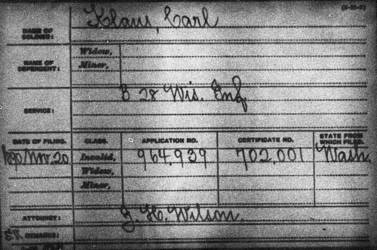 NAME OF SOLDIER: Klaus, Carl
NAME OF DEPENDENT: Widow,
Minor,
SERVICE: B 28 Wis. Inf
DATE OF FILING. CLASS. APPLICATION NO. CERTIFICATE NO. STATE FROM WHICH FILED.
Nov. 20 Invalid, 964,939 702,001 Wash.
Widow,
Minor,
ATTORNEY: J. H. Wilson.
REMARKS: